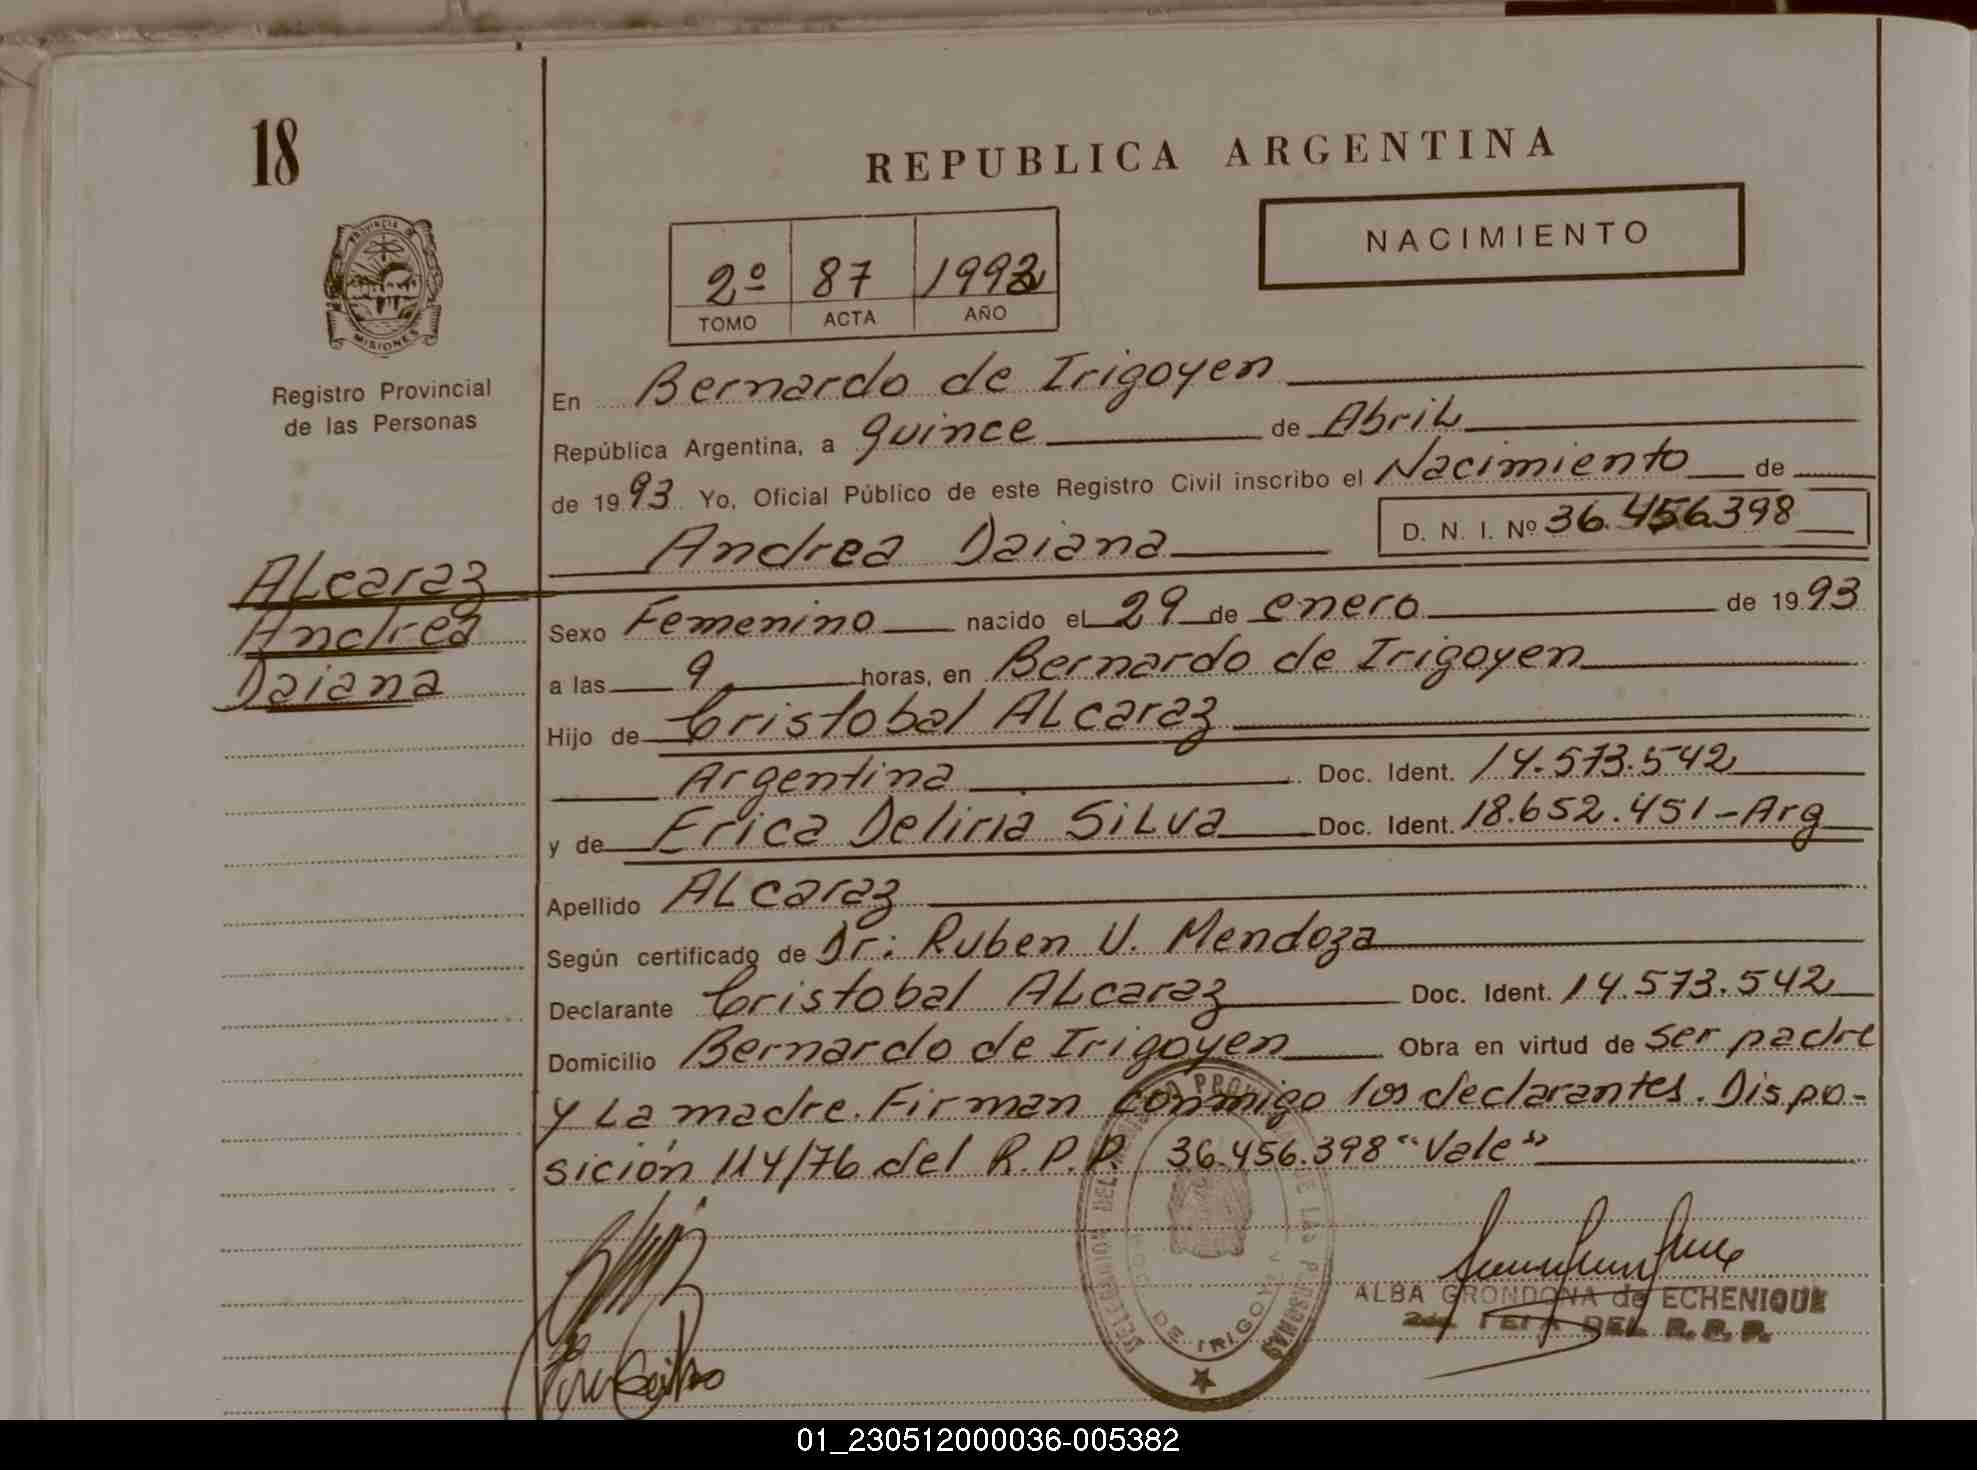 18
REPUBLICA ARGENTINA
PROVINCIA DE
MISIONES
NACIMIENTO
2º 87 1992
TOMO ACTA AÑO
Registro Provincial
de las Personas
En Bernardo de Irigoyen
República Argentina, a quince de Abril
de 1993 Yo, Oficial Público de este Registro Civil inscribo el Nacimiento de
Andrea Daiana D. N. I. Nº 36.456.398
Alcaraz
Andrea
Daiana
Sexo Femenino nacido el 29 de enero de 1993
a las 9 horas, en Bernardo de Irigoyen
Hijo de Cristobal Alcaraz
Argentina Doc. Ident. 14.573.542
y de Erica Deliria Silva Doc. Ident. 18.652.451-Arg
Apellido Alcaraz
Según certificado de Dr: Ruben V. Mendoza
Declarante Cristobal Alcaraz Doc. Ident. 14.573.542
Domicilio Bernardo de Irigoyen Obra en virtud de ser padre
y la madre. Firman conmigo los declarantes. Dispo-
sición 114/76 del R.P.P. 36.456.398 "Vale"
DE IRIGOYEN
ALBA GRONDONA de ECHENIQUE
JEFA DEL R. P. P.
01_230512000036-005382